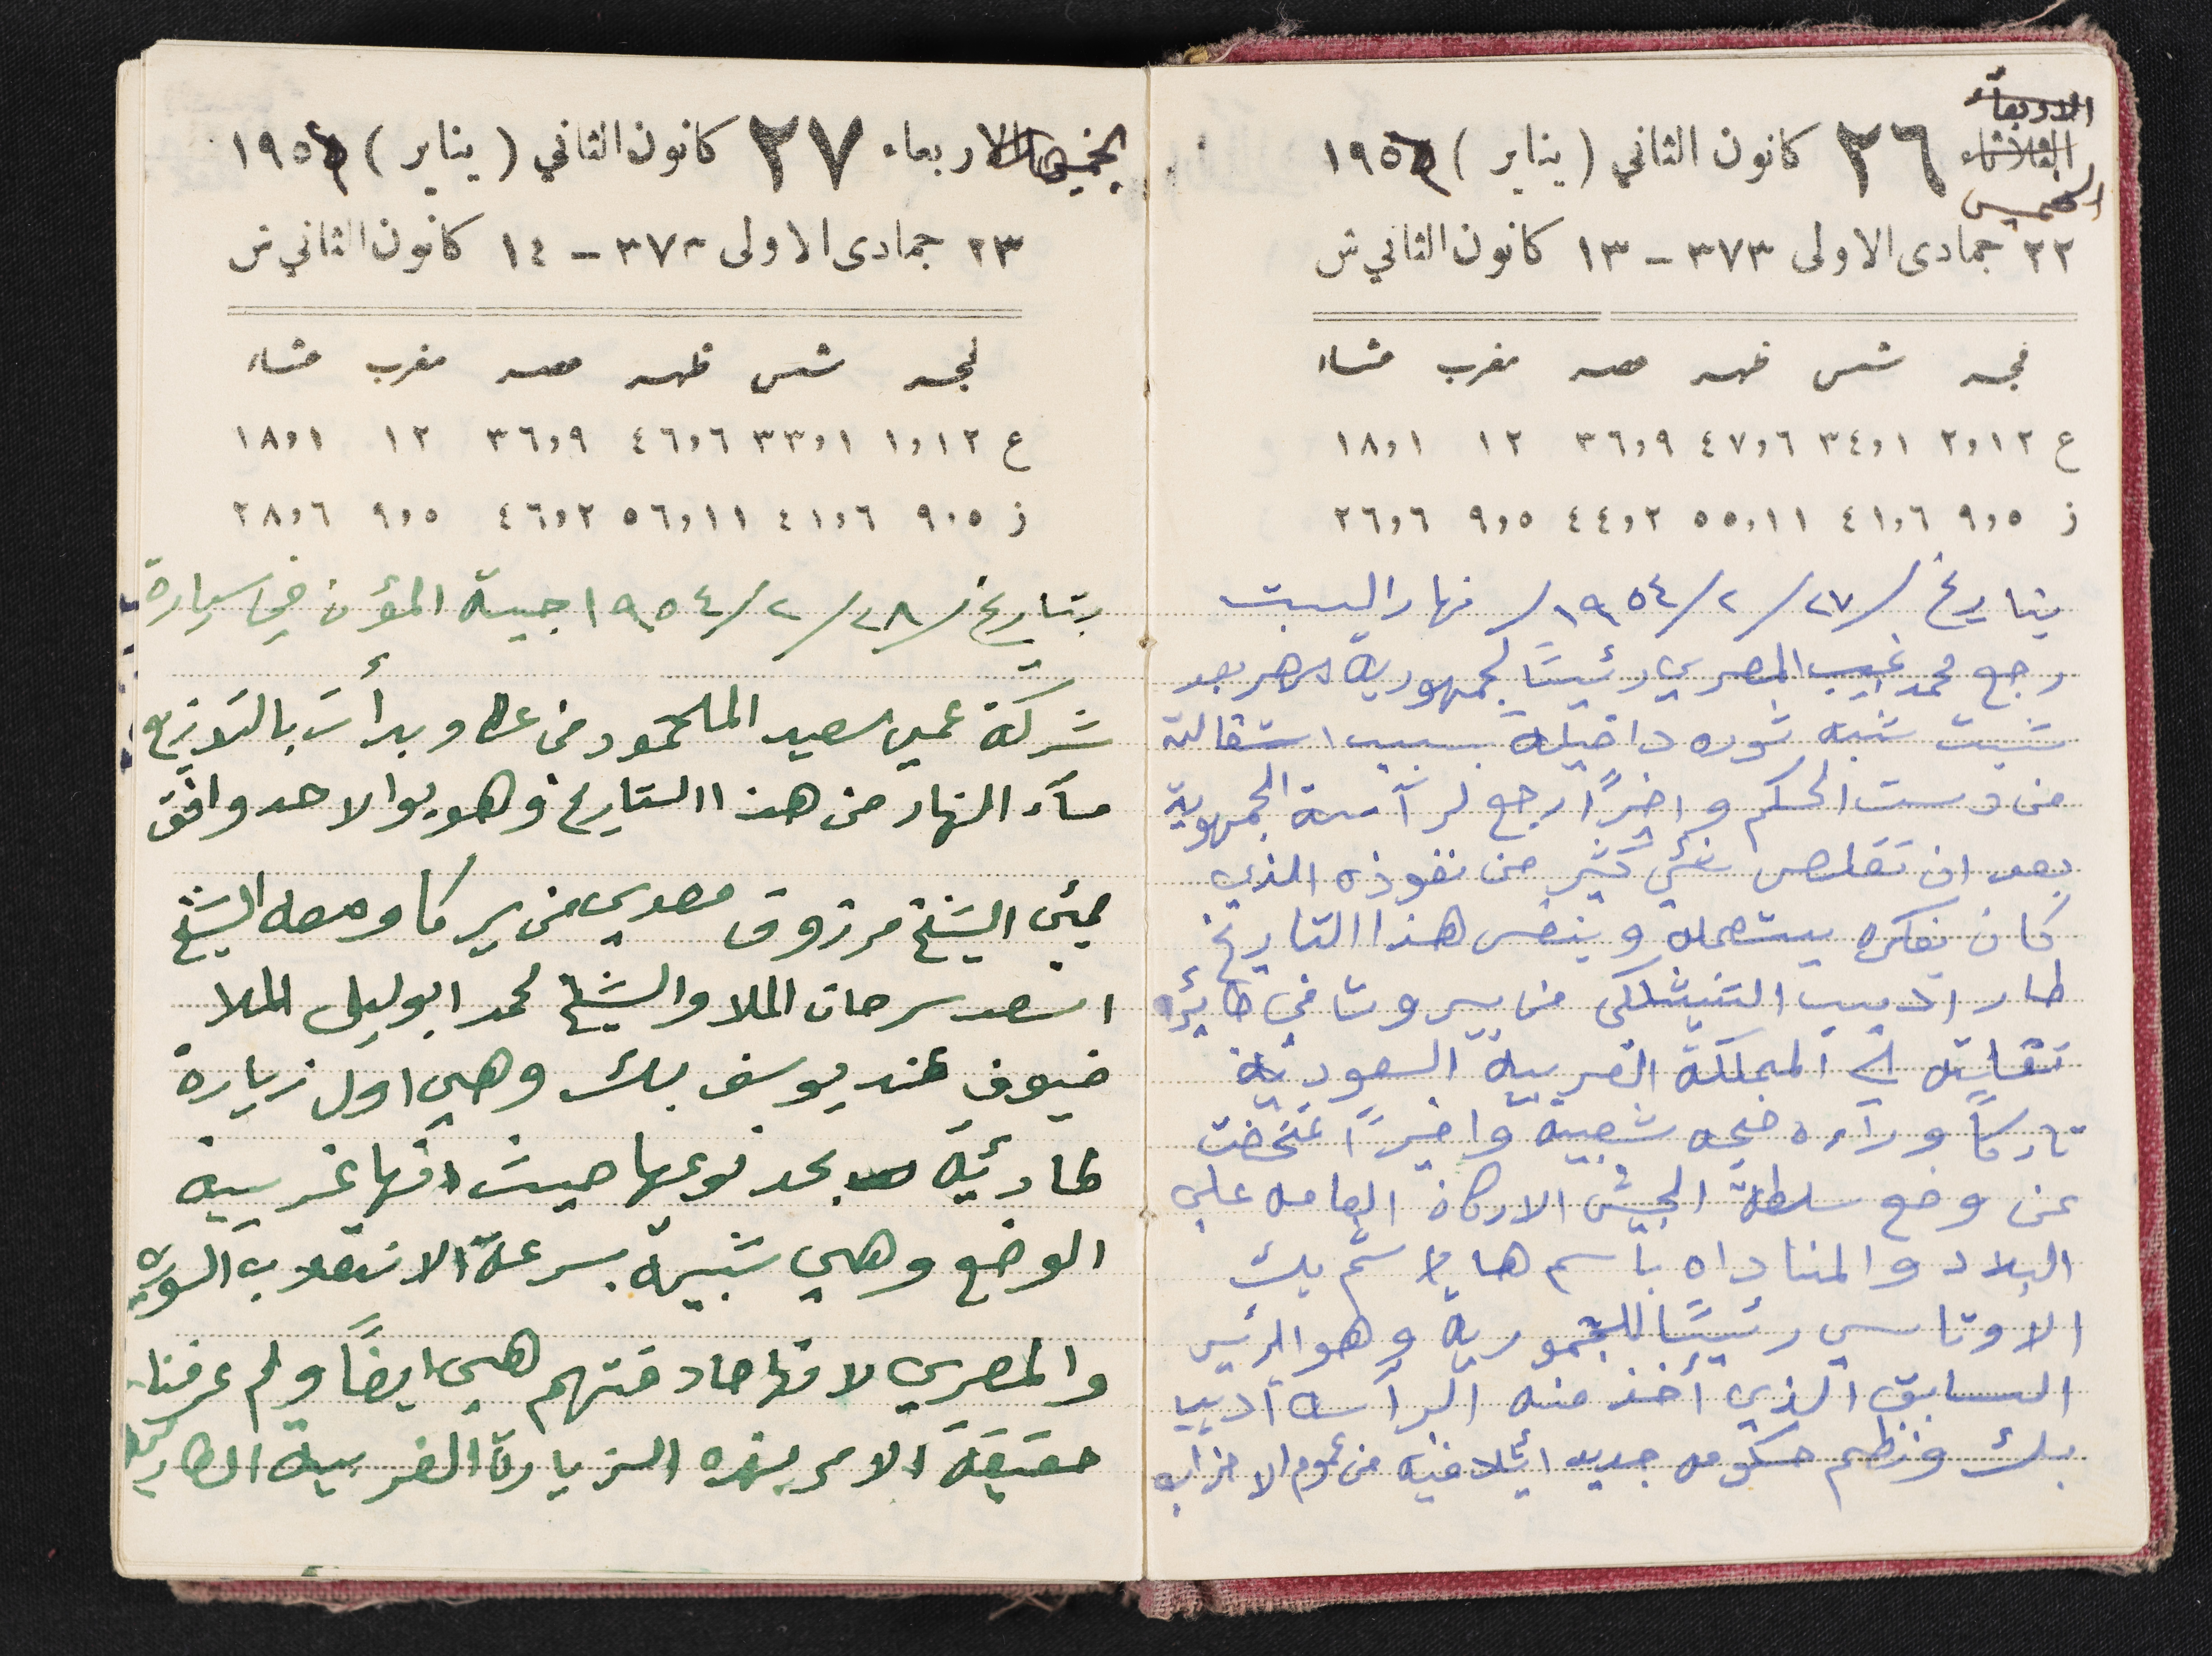 الاربعاء
الثلاثاء ٢٦ كانون الثاني (يناير) ١٩٥٤
الخميس
٢٢ جمادى الاولى ٣٧٣ - ١٣ كانون الثاني ش
فجر شمس ظهر عصر مغرب عشاء
ع ٢,١٢ ٣٤,١ ٤٧,٦ ٣٦,٩ ١٢ ١٨,١
ز ٩,٥ ٤١,٦ ٥٥,١١ ٤٤,٢ ٩,٥ ٢٦,٦
بتاريخ /٢٧/٢/١٩٥٤/ نهار السبت
رجع محمد نجيب المصري رئيسًا لجمهورية مصر بعد
شبت شبه ثوره داخيلة بسبب استقالته
من دست الحكم واخيرًا رجع لرآسة الجمهوية
بعد ان تقلص شئ كثير من نفوذه الذي
كان بفكره يستعمله وبنفس هذا التاريخ
طار اديب الشيشكلي من بيروت في طائره
نقاله الى المملكة العربية السعودية
تاركًا ورآءه ضجه شعبية واخيرًا تمخضت
عن وضع سلطة الجيش الاركان العامه على
البلاد والمناداه باسم هاشم بك
الاوتاسي رئيسًا للجمورية وهو الرئيس
السابق الذي أخذ منه الرآسه اديب
بك ونظم حكومه جديده ائيلافيه من عموم الاحزاب
الخميس الاربعاء ٢٧ كانون الثاني (يناير) ١٩٥٤
٢٣ جمادى الاولى ٣٧٣ - ١٤ كانون الثاني ش
فجر شمس ظهر عصر مغرب عشاء
ع ١,١٢ ٣٣,١ ٤٦,٦ ٣٦,٩ ١٢ ١٨,١
ز ٩,٥ ٤١,٦ ٥٦,١١ ٤٦,٢ ٩,٥ ٢٨,٦
بتاريخ /٢٨/٢/١٩٥٤ جبية المؤن في سيارة
شركة عمي سعيد الملحمود من عكا وبدأت بالتوزيع
مسآء النهار من هذا التاريخ وهو يوا الاحد وافق
مجئ الشيخ مرزوق معدي من يركا ومعه الشيخ
اسعد سرحان الملا والشيخ محمد ابوليل الملا
ضيوف عند يوسف بك وهي اول زيارة
طارئية بحد نوعها حيث انها غريبة
الوضع وهي شبيهة بسرعة الانقلاب السوريه
والمصري لانها صادفتهم هي ايضًا ولم عرفنا
حقيقة الامر بهذه الزيارة الغريبة